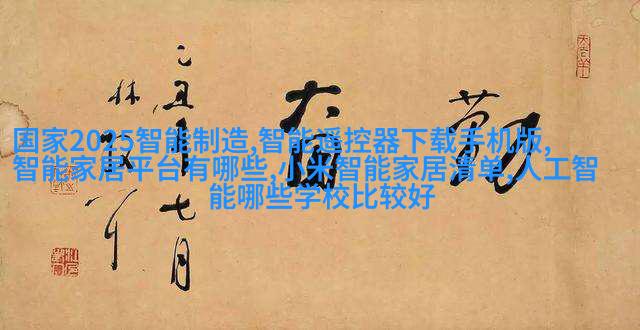 国家2025智能制造,智能遥控器下载手机版,
智能家居平台有哪些,小米智能家居清单,人工智
能哪些学校比较好
勤奮
乙丑年七月
林散耳